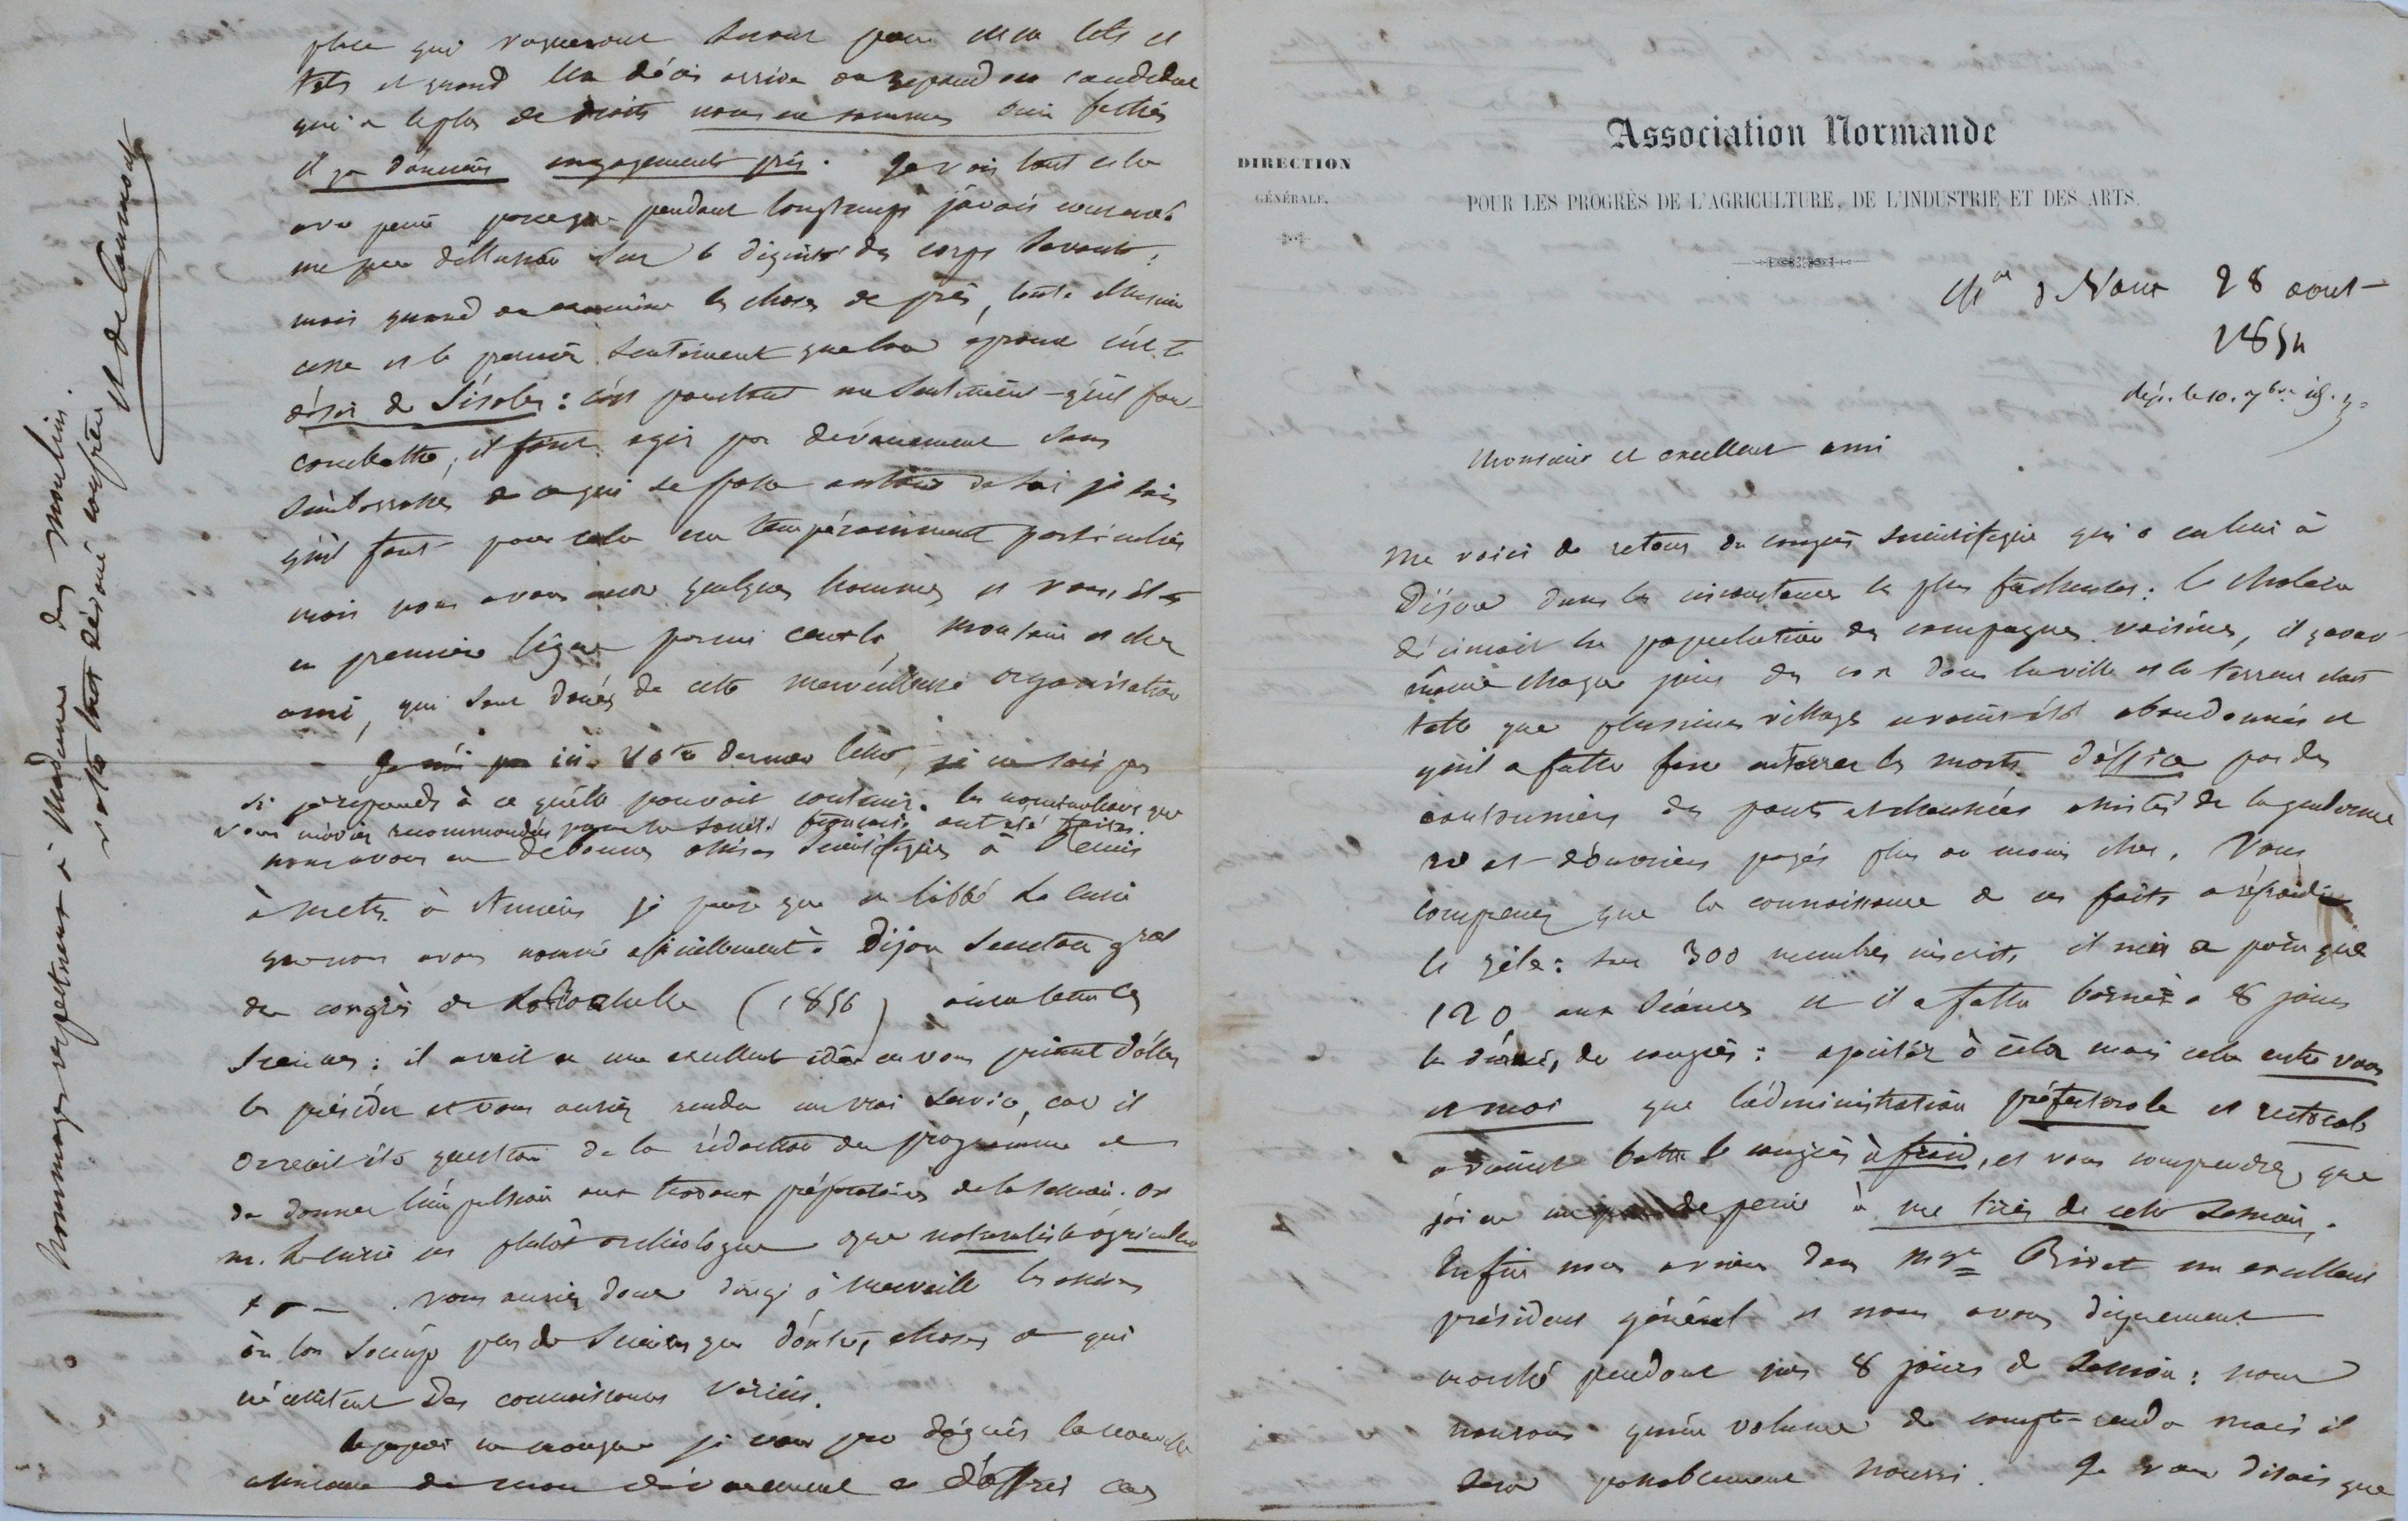 Association Normande
DIRECTION
GÉNÉRALE.
POUR LES PROGRÈS DE L'AGRICULTURE, DE L'INDUSTRIE ET DES ARTS.
28 aout
1854
rép. le 10. 7bre
Monsieur et excellent ami
Me voici de retour du congrès scientifique qui a eu lieu à
Dijon dans les circonstances les plus facheuses : le cholera
décimait la population des campagnes voisines, il y avait
même chaque jour des cas dans la ville et la terreur etait
telle que plusieurs villages avaient été abandonnés et
qu'il a fallu faire enterrer les morts d'office par des
cantonniers des ponts et chaussées assistés de la gendarme
rie et d'ouvriers payés plus ou moins cher. Vous
comprenez que la connaissance de ces faits a refroidi
le zèle : sur 300 membres inscrits, il n'en a paru que
120 aux séances et il a fallu borner à 8 jours
la durée du congrès : ajoutez à cela mais cela entre vous
et moi que l'administration préfectorale et rectorale
avaient battu le congrès à froid, et vous comprendrez que
j'ai eu un peu de peine à me tirer de cette session.
Enfin nous avions dans Mgr Rivet un excellent
président général et nous avons dignement
marché pendant nos 8 jours de session : nous
n'aurons qu'un volume de compte-rendu mais il
sera passablement nourri. Je vous disais que
place qui vaqueront
tels et quand l'on arrive on repond au candidat
qui a le plus de droits nous en sommes bien fachés
il y a d'anciens engagements pris. Je vois tout cela
avec peine parce que pendant longtemps j'avais conservé
un peu d'illusion sur la dignité des corps savants ;
mais quand on examine les choses de près, toute illusion
cesse et le premier sentiment que l'on éprouve c'est le
désir de s'isoler : c'est pourtant un sentiment qu'il faut
combattre ; il faut agir par dévouement sans
s'embarrasser de ce qui se passe autour de soi je sais
qu'il faut pour cela un tempérament particulier
mais nous avons encore quelques hommes et vous êtes
en première ligne parmi ceux là, Monsieur et cher
ami, qui sont doués de cette merveilleuse organisation
Je n'ai pas ici votre dernière lettre, je ne sais pas
si je reponds à ce qu'elle pouvait contenir. les nominations que
vous m'aviez recommandées pour la société française ont été faites.
nous avons eu de bonnes assises scientifiques à Reims
à Metz à Amiens je pense que M. l'abbé La curie
que nous avons nommé officiellement à Dijon secretaire gral
du congrès de La Rochelle (1856) aura tenu les
siennes : il avait eu une excellente idée en vous priant d'aller
les présider et vous auriez rendu un vrai service, car il
aurait été question de la rédaction du programme et
de donner l'impulsion aux travaux préparatoires de la session. or
M. La curie est plutôt archéologue que naturaliste agriculteur
vous auriez donc dirigé à merveille les assises
où l'on s'occupe plus de sciences que d'autres choses et qui
nécessitent des connaissances variées.
le papier me manque je vous prie d'agréer la nouvelle
assurance de mon dévouement et d'offrir ces
hommages respectueux à Madame des Moulins.
votre tout dévoué confrère
de Caumont